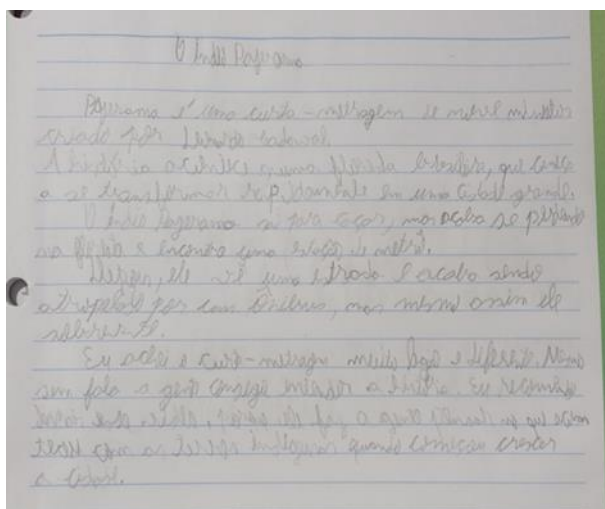 O Índio Pajerama
Pajerama é uma curta-metragem de nove minutos
criado por Leonardo Cadaval.
A história acontece numa floresta brasileira, que começa
a se transformar rapidamente em uma cidade grande.
O Índio Pajerama sai para caçar, mas acaba se perdendo
na floresta e encontra uma estação de metrô.
ele vê uma estrada e acaba sendo
atropelado por um ônibus, mas mesmo assim ele
sobrevive.
Eu achei a curta-metragem muito legal e diferente. Mesmo
sem fala a gente consegue entender a história. Eu recomendo
faz a gente no que
com as terras indígenas quando começou crescer
a cidade.